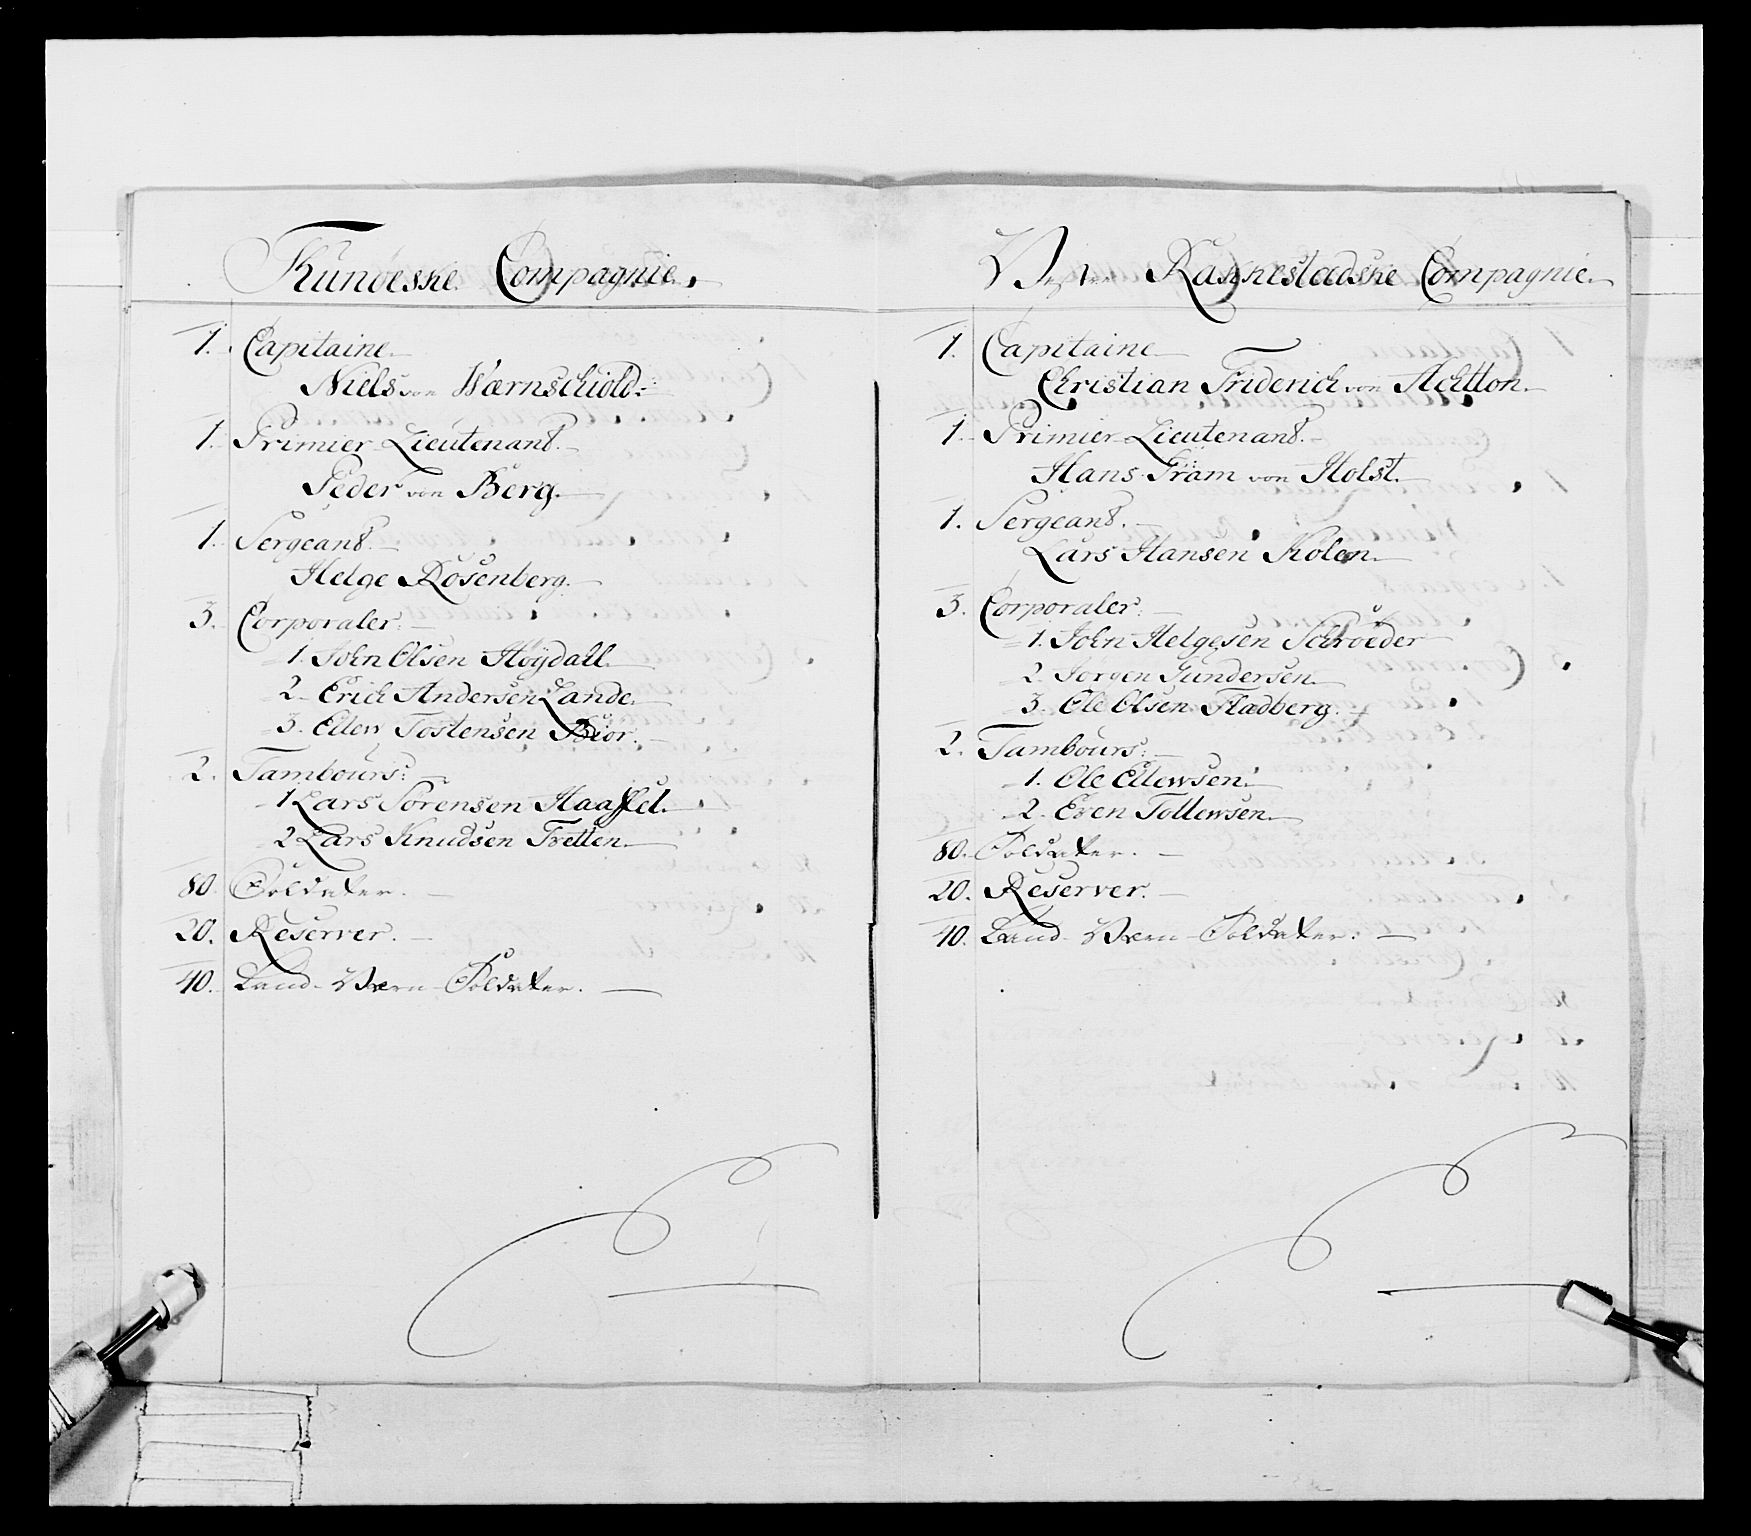 Compagnie.
1. Capitaine.
Niels von Wærnschiold.
1. Primier-Lieutenant.
Peder von Berg.
1. Sergeant.
Helge Rosenberg.
3. Corporaler.
1. John Olsen Høydall.
2. Erich Andersen Lande.
3. Ellew Tostensen Biør.
2. Tambours:
1 Lars Sørensen Haassel.
2 Lars Knudsen Tvetten.
80. Soldater.
20. Reserver.
40. Land-Værn-Soldater.
Vester Rakkestadske Compagnie.
1. Capitaine
Christian Friderich von Achtton.
1. Primier-Lieutenant.
Hans Fram von Holst.
1. Sergeant.
Lars Hansen Kolen.
3. Corporaler.
1. John Helgesen Schrøder
2. Jørgen Gundersen.
3. Ole Olsen Fladberg.
2. Tambours:
1. Ole Ellewsen.
2. Even Tollewsen.
80. Soldater.
20. Reserver.
40. Land-Værn-Soldater.